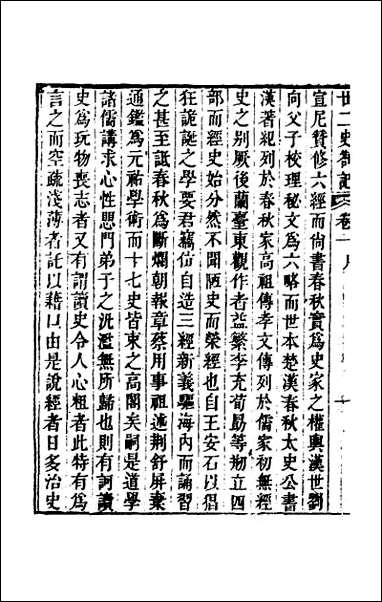 廿二史劄記 卷一
宣尼贊修六經而尚書春秋實爲史家之權輿漢世劉
向父子校理秘文爲六略而世本楚漢春秋太史公書
漢著紀列於春秋家高祖傳孝文傳列於儒家初無經
史之别厥後蘭臺東觀作者益繁李充荀勗等刱立四
部而經史始分然不聞陋史而榮經也自王安石以猖
狂詭誕之學要君竊位自造三經新義驅海内而誦習
之甚至詆春秋爲斷爛朝報章蔡用事祖述荆舒屏棄
通鑑爲元祐學術而十七史皆束之高閣矣嗣是道學
諸儒講求心性思門弟子之汎濫無所歸也則有訶讀
史爲玩物喪志者又有謂讀史令人心粗者此特有爲
言之而空疏淺薄者託以藉口由是說經者日多治史